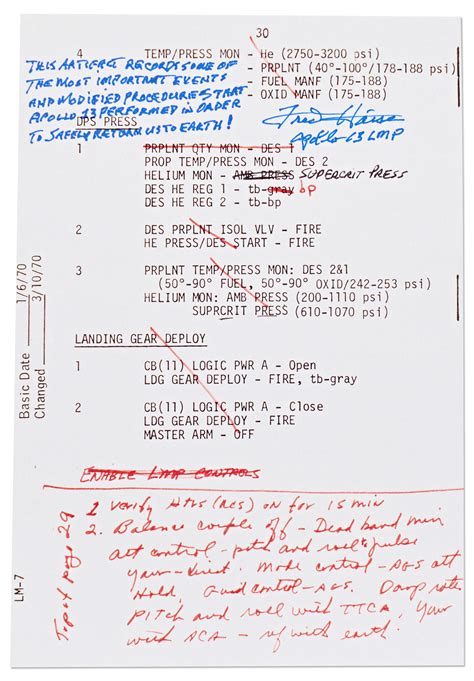 30
4 TEMP/PRESS MON - He (2750-3200 psi)
- PRPLNT (40°-100°/178-188 psi)
- FUEL MANF (175-188)
- OXID MANF (175-188)
THIS ARTIFACT RECORDS SOME OF
THE MOST IMPORTANT EVENTS
AND MODIFIED PROCEDURES THAT
APOLLO 13 PERFORMED IN ORDER
TO SAFELY RETURN US TO EARTH!
Fred Haise
Apollo 13 LMP
DPS PRESS
1 PRPLNT QTY MON - DES 1
PROP TEMP/PRESS MON - DES 2
HELIUM MON - AMB PRESS SUPERCRIT PRESS
DES HE REG 1 - tb-gray bp
DES HE REG 2 - tb-bp
2 DES PRPLNT ISOL VLV - FIRE
HE PRESS/DES START - FIRE
3 PRPLNT TEMP/PRESS MON: DES 2&1
(50°-90° FUEL, 50°-90° OXID/242-253 psi)
HELIUM MON: AMB PRESS (200-1110 psi)
SUPRCRIT PRESS (610-1070 psi)
LANDING GEAR DEPLOY
1 CB(11) LOGIC PWR A - Open
LDG GEAR DEPLOY - FIRE, tb-gray
2 CB(11) LOGIC PWR A - Close
LDG GEAR DEPLOY - FIRE
MASTER ARM - OFF
Basic Date 1/6/70
Changed 3/10/70
LM-7
ENABLE LMP CONTROLS
Top of page 29
1 Verify Htrs (RCS) on for 15 min
2. Balance couple off - Dead band min
att control - pitch and roll to pulse
yaw - direct. Mode control - AGS att
Hold, Guid control - AGS. Damp rates
PITCH and roll with TTCA, Yaw
with ACA - with earth.